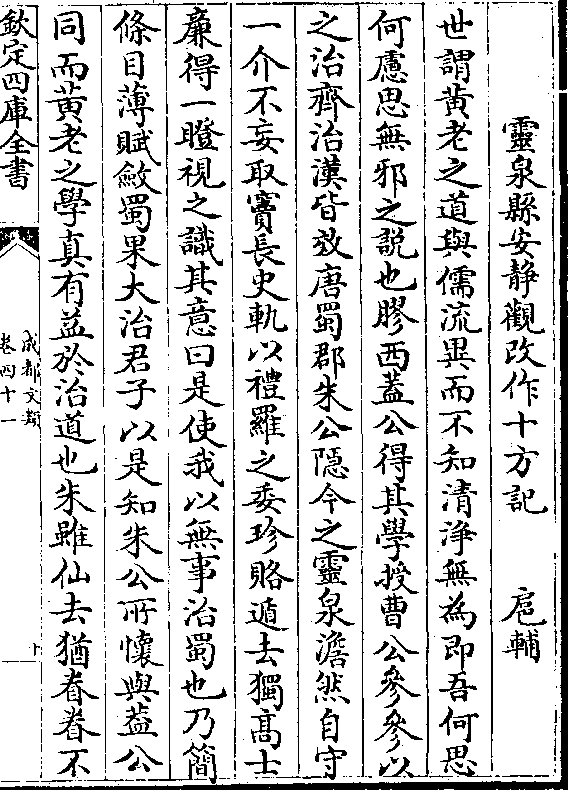 靈泉縣安静觀改作十方記　扈輔
世謂黄老之道與儒流異而不知清浄無為即吾何思
何慮思無邪之説也膠西蓋公得其學授曹公參參以
之治齊治漢皆效唐蜀郡朱公隠今之靈泉澹然自守
一介不妄取竇長史軌以禮羅之委珍賂遁去獨髙士
亷得一瞪視之識其意曰是使我以無事治蜀也乃簡
條目薄賦斂蜀果大治君子以是知朱公所懷與葢公
同而黄老之學真有益於治道也朱雖仙去猶眷眷不
欽定四庫全書
成都文類
卷四十一